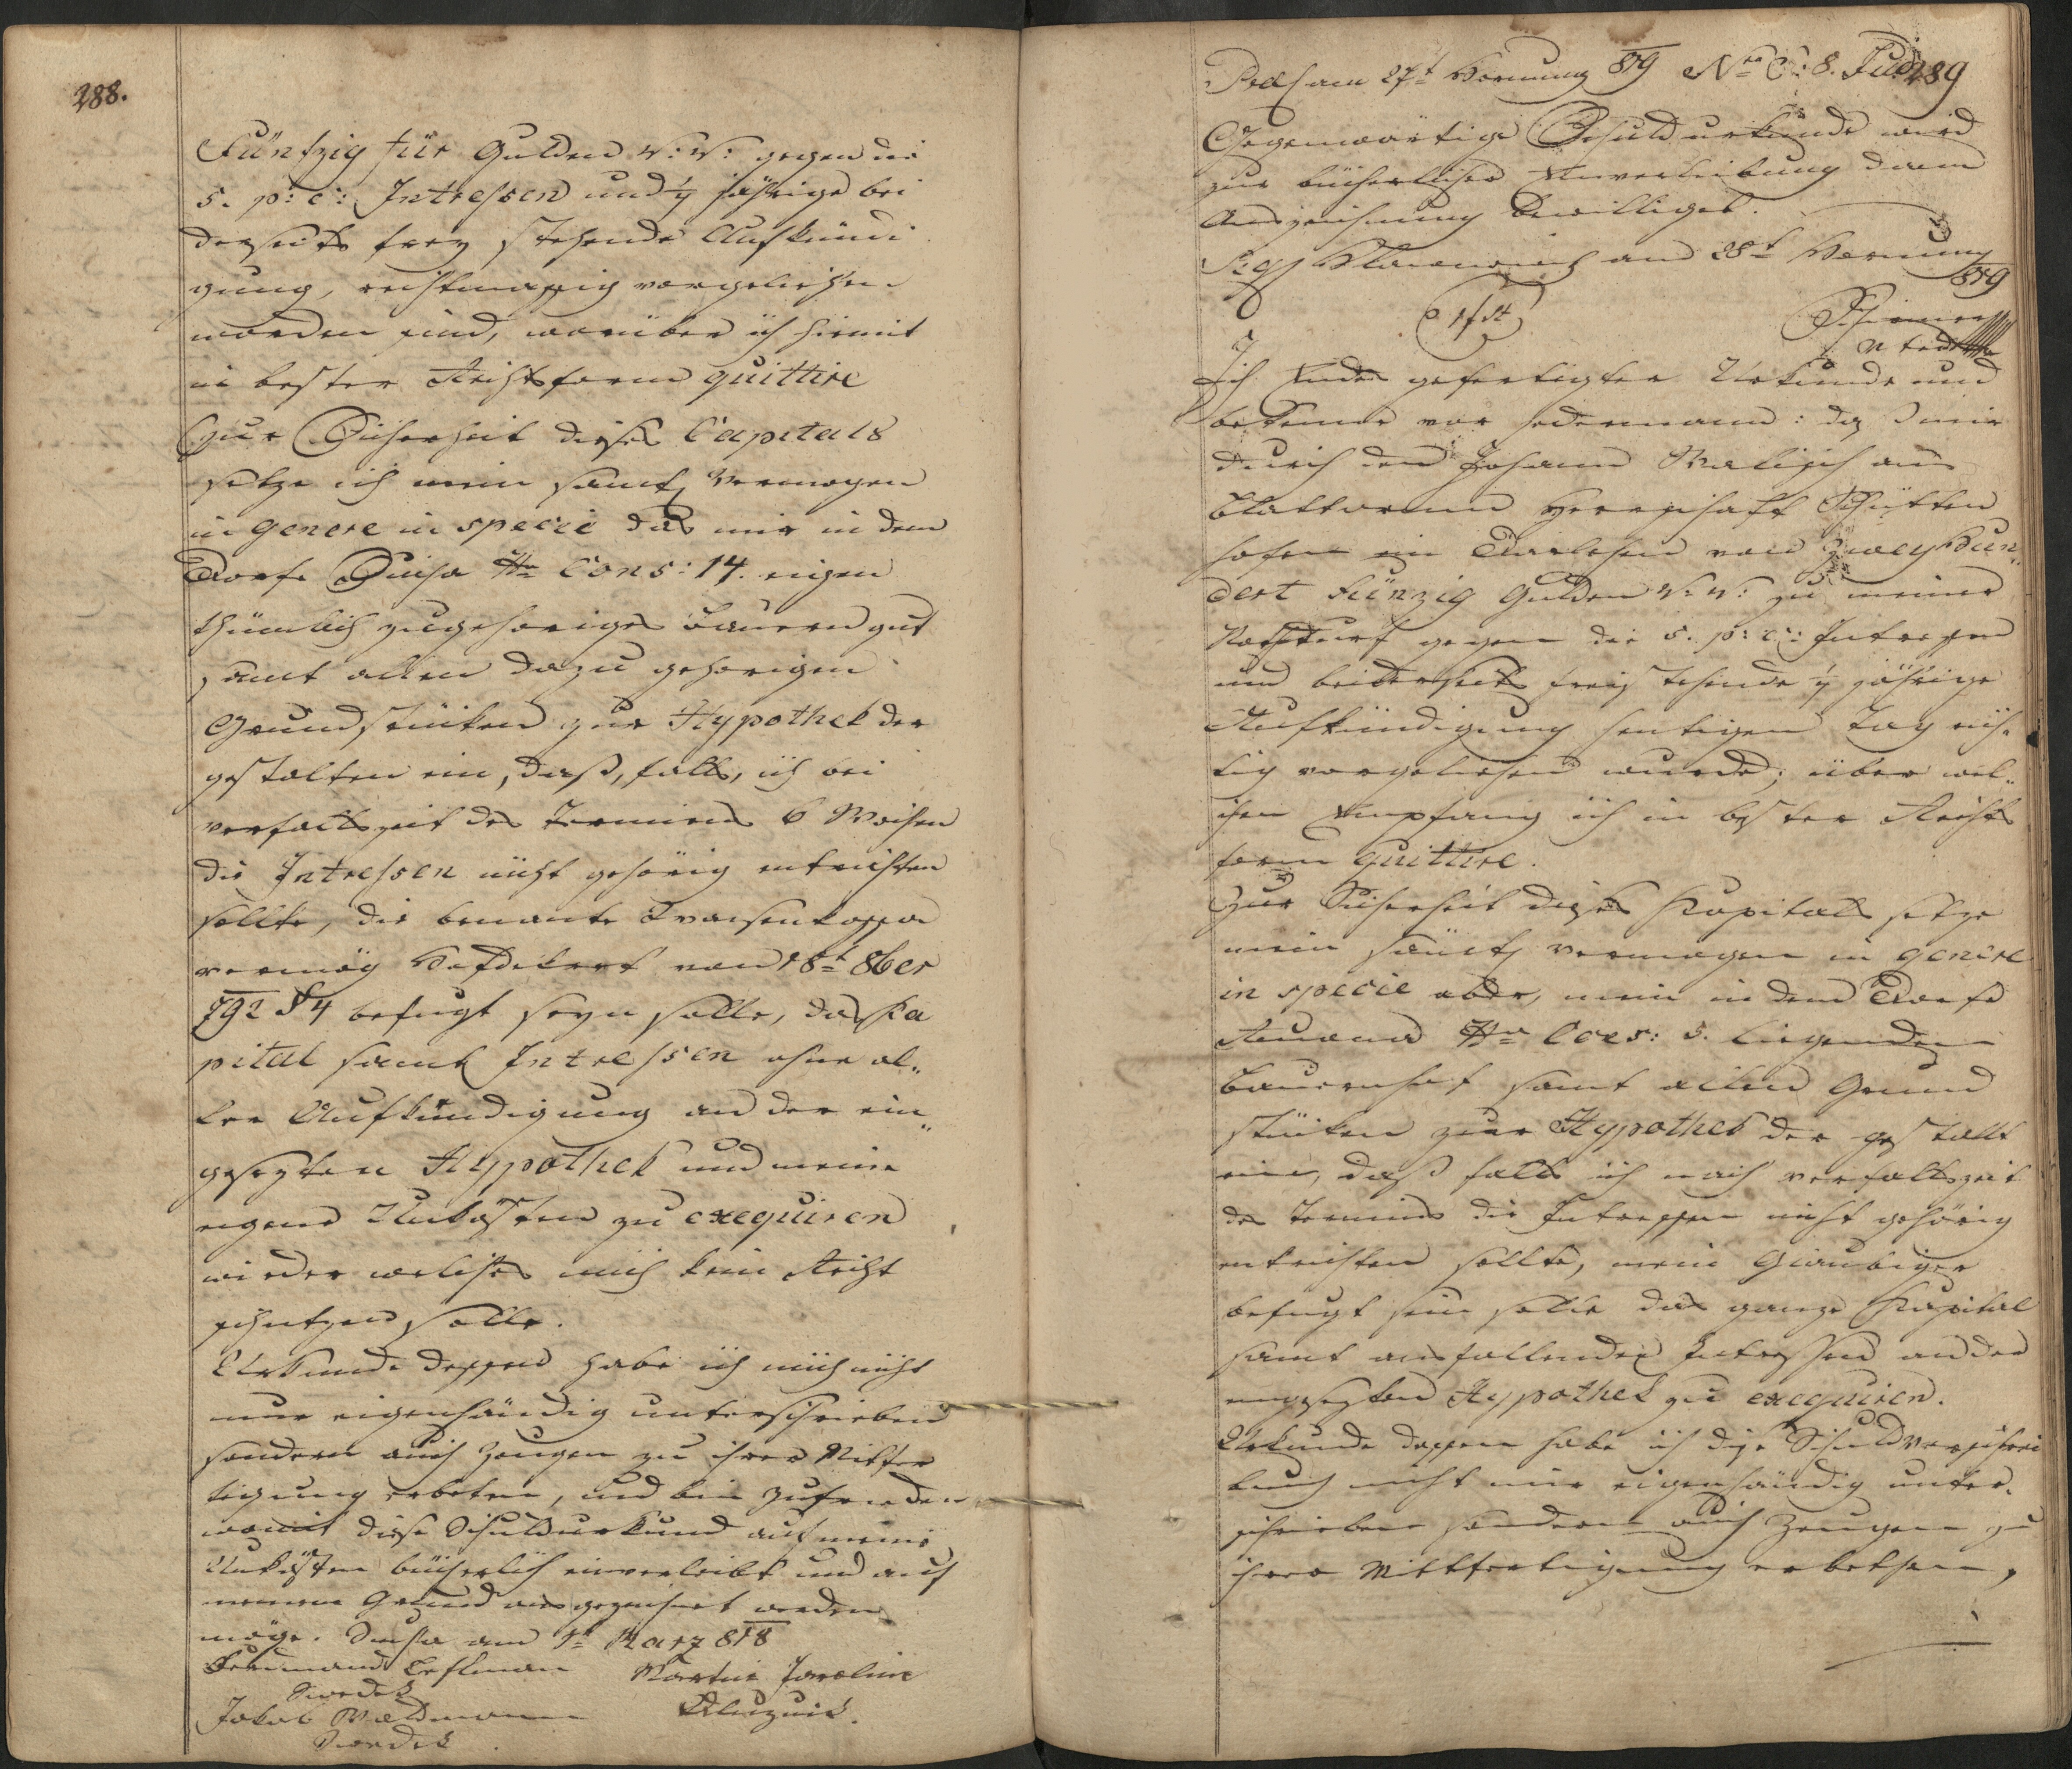 288.
Fünfzig für Gulden W: W: gegen die
5. p: c: Intressen und ½ jährige bei
derseits frey stehende Aufkündi
gung, rechtmassig vorgeliehen
worden sind, worüber ich hiermit
in bester Rechtsform quittire
Zur Sicherheit dieses Capitals
setze ich mein samtl Vermogen
in genere in specie das mir in dem
Dorfe N: Cons: 14. eigen
thümlich zugehöriges Bauerngut
samt allen dazu gehorigen
Grundstüken zur Hypothek der
gestalten ein, daß, falls, ich bei
verfallszeit des Termins 6 Wochen
die Intressen nicht gehörig entrichten
sollte, die benante Waisenkassa
vermög Hofdekret von 18t 8ber
792 § 4 befugt seyn solle, das Ka
pital samt Intressen ohne al„
ler Aufkündigung an der ein„
gesezten Hypothek und meine
eigene Unkösten zu exequiren
wieder welches mich kein Recht
schützen solle.
Urkunde dessen habe ich mich nicht
nur eigenhändig unterschrieben
sondern auch Zeugen zu ihrer Mitfer
tigung erbeten, und bin zufrieden
womit diese Schuldurkund auf meine
Unkösten bücherlich einverleibt und auf
meinen Grund ausgezeichnet werden
möge. am 1t März 818
Ferdinand Martin
Swedek
Jakob Waldmann
Swedek
Praes am 27t Hornung 819 Nro E: 8. Jud 289
Gegenwärtige Schuldurkunde wird
zur bücherlicher Einverleibung dann
Auszeichnung bewilliget.
am 28t Hornung
819
Ich Endes gefertigter Urkunde und
bekenne vor jedermann: daß mir
durch den Johann aus
Herrschaft Schütten
hofen ein Darlehen von Zweyhun„
dert Fünzig Gulden W: W: zu meiner
Nothdurf gegen die 5. p: c: Intressen
und beiderseits freistehende ½ jährige
Aufkündigung heutigen Tag rich
tig vorgeliehen wurde; über wel„
chen Empfang ich in bester Rechts
form quittire.
Zur Sicherheit dieses Kapitals setze
mein sämtl vermogen in genere
in specie aber, mein in dem Dorfe
N: Cons: 5. liegenden
Bauernhof samt allen Grund
stüken zur Hypothek der gestallt
ein, daß falls ich nach verfallszeit
des Termins die Intressen nicht gehörig
entrichten sollte, mein Glaubiger
befugt sein solle das ganze Kapital
samt ausfallenden Intressen an der
eingesezten Hypothek zu exequiren.
Urkunde dessen habe ich diese Schuldverschrei
bung nicht nur eigenhändig unter„
schrieben sondern auch Zeugen zu
ihrer Mittfertigung erbethen,